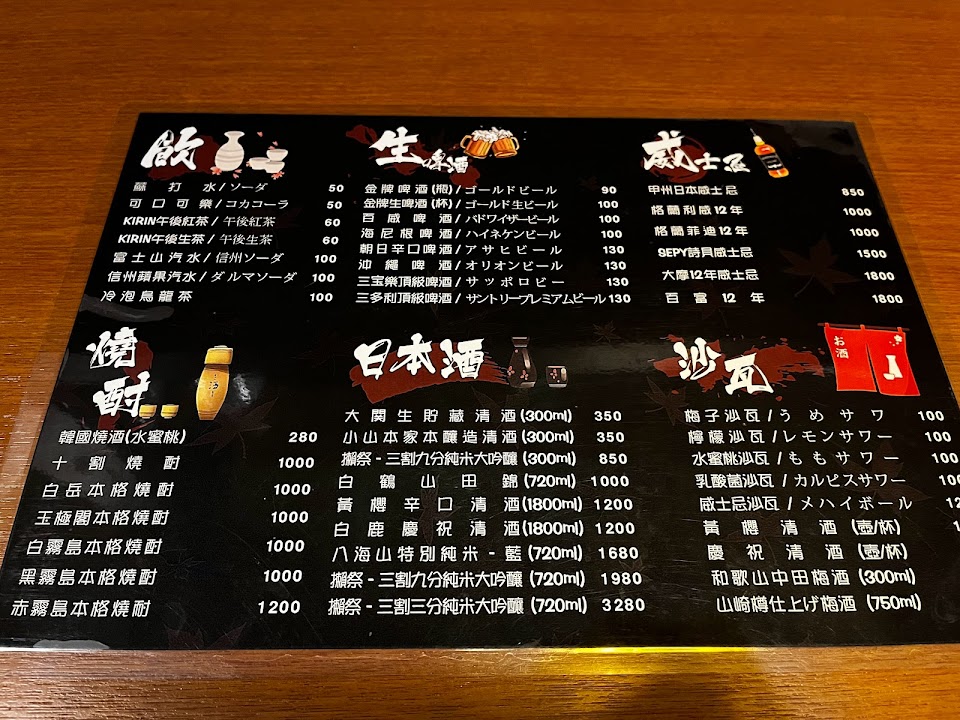 飲
蘇打水/ソーダ 50
可口可樂/コカコーラ 50
KIRIN午後紅茶/午後紅茶 60
KIRIN午後生茶/午後生茶 60
富士山汽水/信州ソーダ 100
信州蘋果汽水/ダルマソーダ 100
冷泡烏龍茶 100
生啤酒
金牌啤酒(瓶)/ゴールドビール 90
金牌生啤酒(杯)/ゴールド生ビール 100
百威啤酒/バドワイザービール 100
海尼根啤酒/ハイネケンビール 100
朝日辛口啤酒/アサヒビール 130
沖繩啤酒/オリオンビール 130
三宝樂頂級啤酒/サッポロビー 130
三多利頂級啤酒/サントリープレミアムビール 130
威士忌
甲州日本威士忌 850
格蘭利威12年 1000
格蘭菲迪12年 1000
SEPY詩貝威士忌 1500
大摩12年威士忌 1800
百富12年 1800
燒酎
韓國燒酒(水蜜桃) 280
十割燒酎 1000
白岳本格燒酎 1000
玉極閣本格燒酎 1000
白霧島本格燒酎 1000
黑霧島本格燒酎 1000
赤霧島本格燒酎 1200
日本酒
大関生貯蔵清酒(300ml) 350
小山本家本釀造清酒(300ml) 350
獺祭-三割九分純米大吟釀(300ml) 850
白鶴山田錦(720ml) 1000
黃櫻辛口清酒(1800ml) 1200
白鹿慶祝清酒(1800ml) 1200
八海山特別純米-藍(720ml) 1680
獺祭-三割九分純米大吟釀(720ml) 1980
獺祭-三割三分純米大吟釀(720ml) 3280
沙瓦
お酒
梅子沙瓦/うめサワ 100
檸檬沙瓦/レモンサワー 100
水蜜桃沙瓦/ももサワー 100
乳酸菌沙瓦/カルピスサワー
威士忌沙瓦/メハイボール
黃櫻清酒(壺/杯)
慶祝清酒(壺/杯)
和歌山中田梅酒(300ml)
山崎樽仕上げ梅酒(750ml)